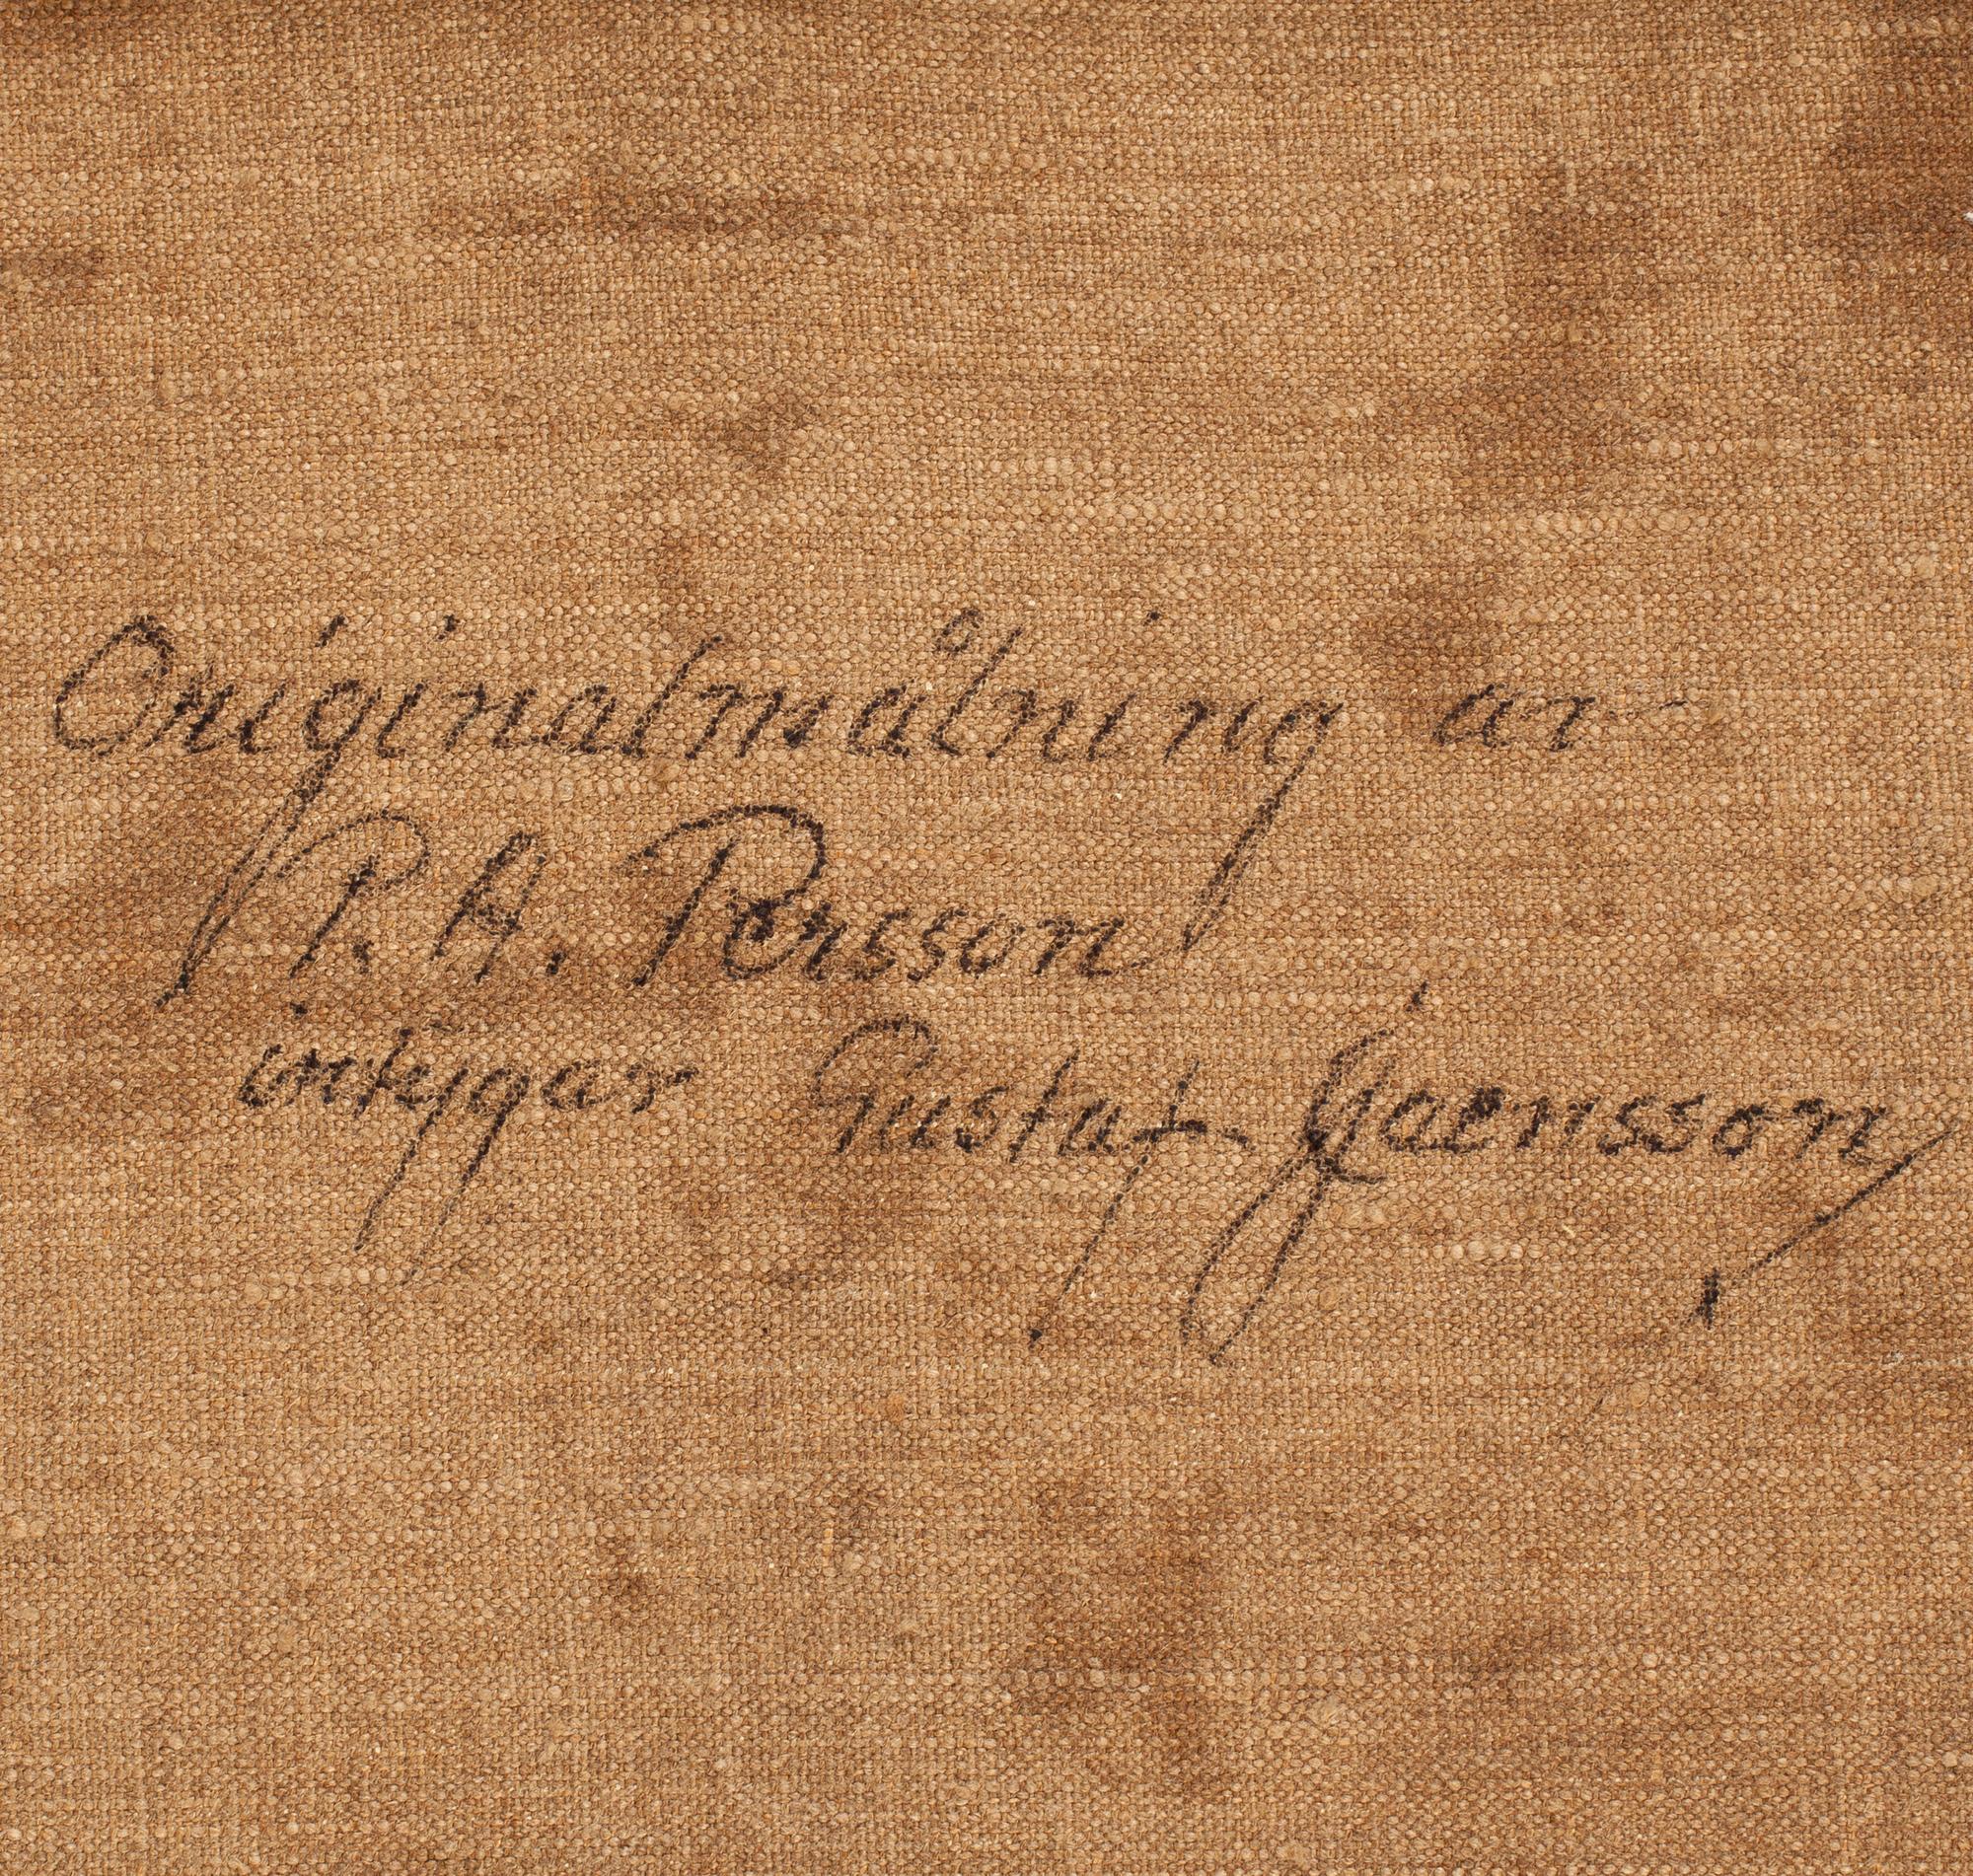 Originalmålning av
P. A. Persson
intygar Gustaf Jaensson